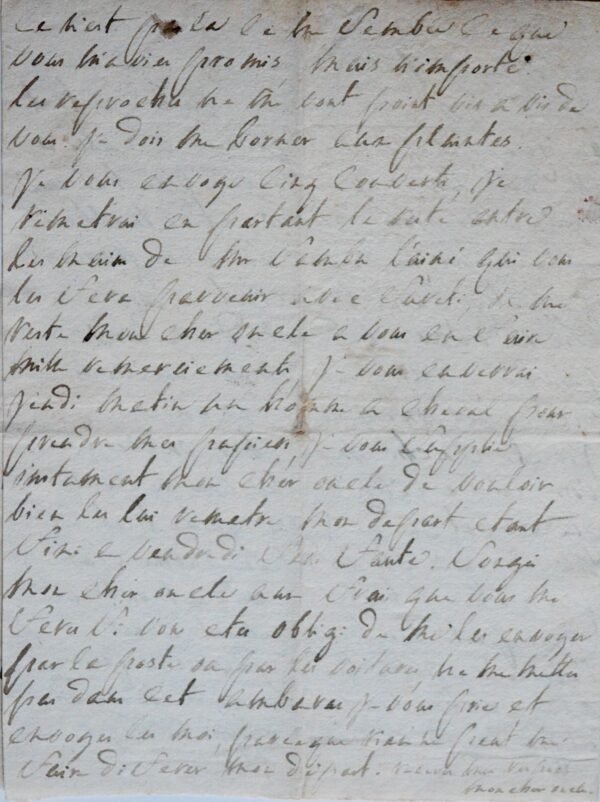 ce n'est pas la ce me semble ce que
vous m'aviez promis, mais n'importe.
les reproches ne me vont point vis a vis de
vous. je dois me borner aux plaintes.
je vous envoye cinq couverts, je
remetrai en partant le reste entre
les mains de mr l'ainé qui vous
les fera parvenir avec sureté, il me
reste mon cher oncle a vous en faire
mille remerciements je vous enverrai
jeudi matin un homme a cheval pour
prendre mes papiers, je vous supplie
instament mon cher oncle de vouloir
bien les lui remetre mon depart etant
fixé a vendredi sans faute. songé
mon cher oncle aux frais que vous me
feré si vous etes obligé de me les envoyer
par la poste ou par les voitures, ne me mettes
pas dans cet ambaras je vous prie et
envoyes les moi, parceque rien ne peut me
faire diferer mon départ. mes respects
mon cher oncle.